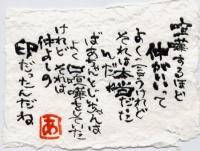 喧嘩するほど
仲がいいって
よく言うけれど
それは本当だった
んだ
ばあちゃんとじいちゃんは
よく喧嘩をしていた
けれどそれは
仲のしの
印だったんだね